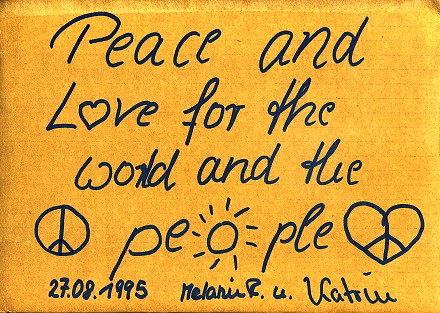 Peace and
Love for the
world and the
people
27.08.1995 Melanie R. u. Katrin